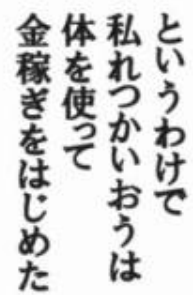 というわけで
私れつかいおうは
体を使って
金稼ぎをはじめた